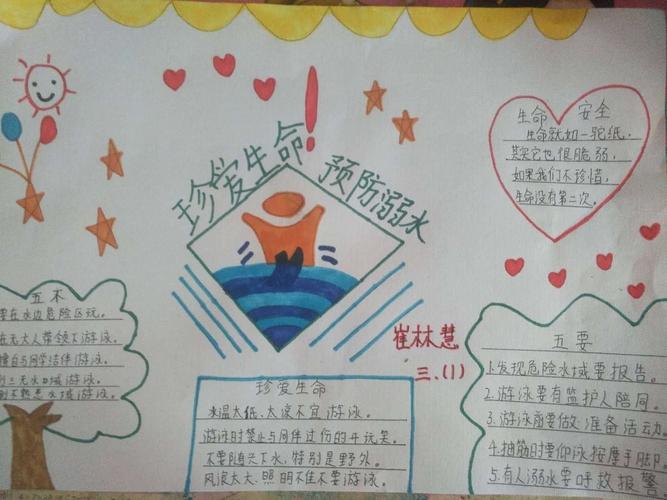 珍爱生命!
预防溺水
生命 安全
生命就如一驼纸,
其实它也很脆弱,
如果我们不珍惜,
生命没有第二次。
五不
要在水边危险区玩。
在无大人带领下游泳。
擅自与同学结伴游泳。
到三无水域游泳。
到不熟悉水域游泳。
崔林慧
三.(1)
珍爱生命
水温太低、太凉不宜游泳。
游泳时禁止与同伴过份的开玩笑。
不要随兴下水,特别是野外。
风浪太大、照明不佳不要游泳。
五要
1.发现危险水域要报告。
2.游泳要有监护人陪同。
3.游泳前要做准备活动
4.抽筋时要仰泳按摩手脚
5.有人溺水要呼救报警